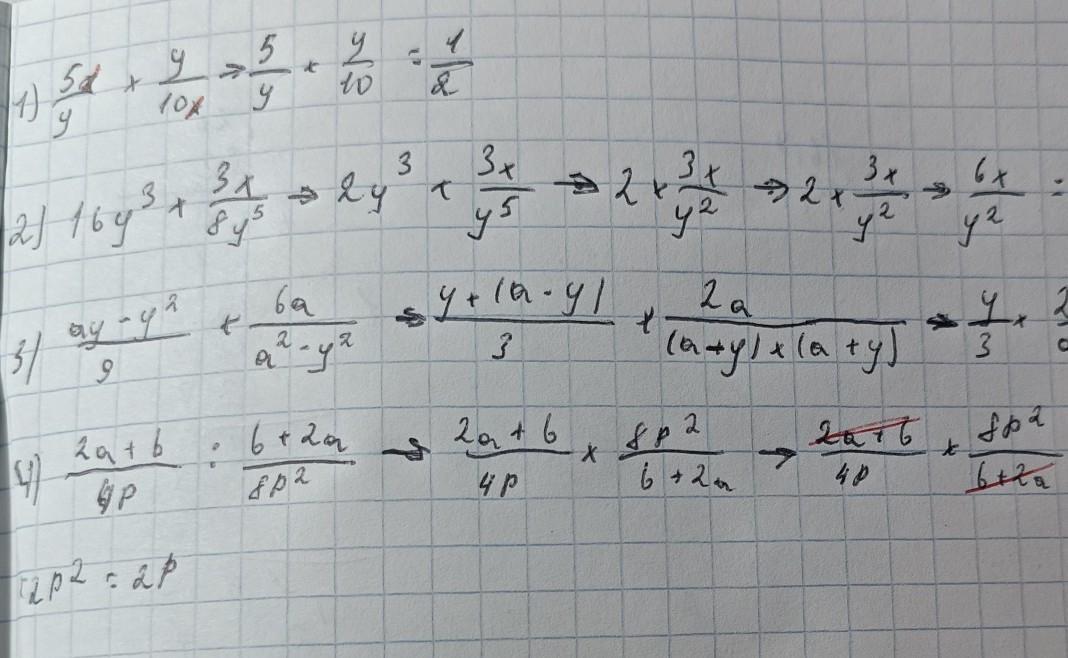 1) 5x/y × y/10x → 5/y × y/10 = 1/2
2) 16y³ × 3x/8y⁵ → 2y³ × 3x/y⁵ → 2 × 3x/y² → 2 × 3x/y² → 6x/y² =
3) ay - y²/9 × 6a/a² - y² → y + (a - y)/3 × 2a/(a + y) × (a + y) → y/3 ×
4) 2a + b/4p : b + 2a/8p² → 2a + b/4p × 8p²/b + 2a → 2a + b/4p × 8p²/b + 2a
2p² = 2p